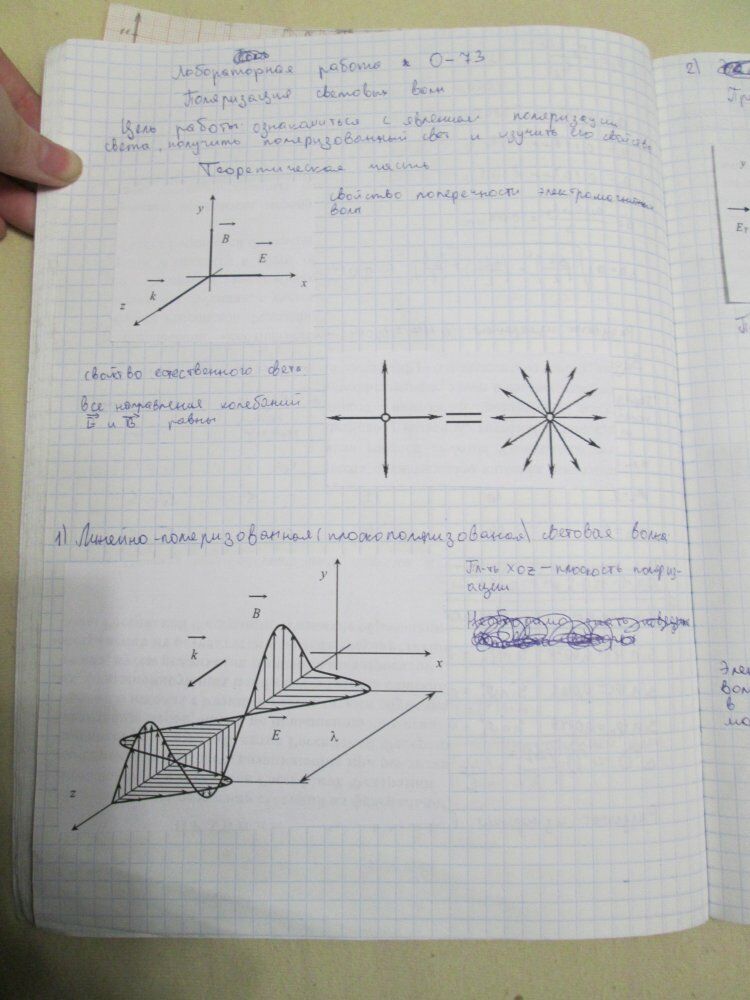 Лабораторная работа О-73
Поляризация световых волн
Цель работы: ознакомиться с явлением поляризации
света, получить поляризованный свет и изучить его свойства
Теоретическая часть
свойство поперечности электромагнитных
волн
y
B
E
k
x
z
свойство естественного света
все направления колебаний
E и B равны
1) Линейно-поляризованная (плоскополяризованая) световая волна
Пл-ть XOZ – плоскость поляриз-
ации
y
B
k
x
E
λ
z
2)
y